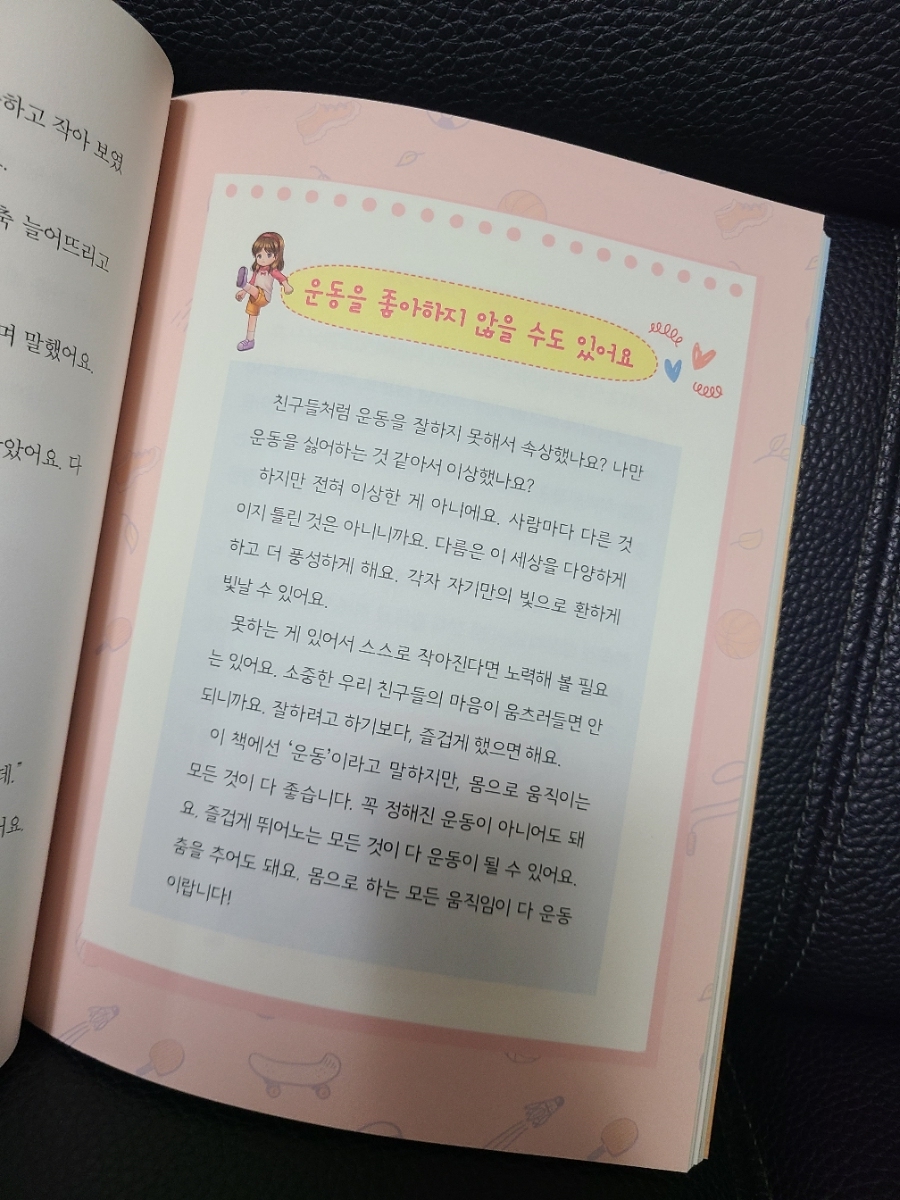 하고 작아 보였
축 늘어뜨리고
며 말했어요.
았어요. 다
데."
요.
운동을 좋아하지 않을 수도 있어요
친구들처럼 운동을 잘하지 못해서 속상했나요? 나만
운동을 싫어하는 것 같아서 이상했나요?
하지만 전혀 이상한 게 아니에요. 사람마다 다른 것
이지 틀린 것은 아니니까요. 다름은 이 세상을 다양하게
하고 더 풍성하게 해요. 각자 자기만의 빛으로 환하게
빛날 수 있어요.
못하는 게 있어서 스스로 작아진다면 노력해 볼 필요
는 있어요. 소중한 우리 친구들의 마음이 움츠러들면 안
되니까요. 잘하려고 하기보다, 즐겁게 했으면 해요.
이 책에선 '운동'이라고 말하지만, 몸으로 움직이는
모든 것이 다 좋습니다. 꼭 정해진 운동이 아니어도 돼
요. 즐겁게 뛰어노는 모든 것이 다 운동이 될 수 있어요.
춤을 추어도 돼요. 몸으로 하는 모든 움직임이 다 운동
이랍니다!